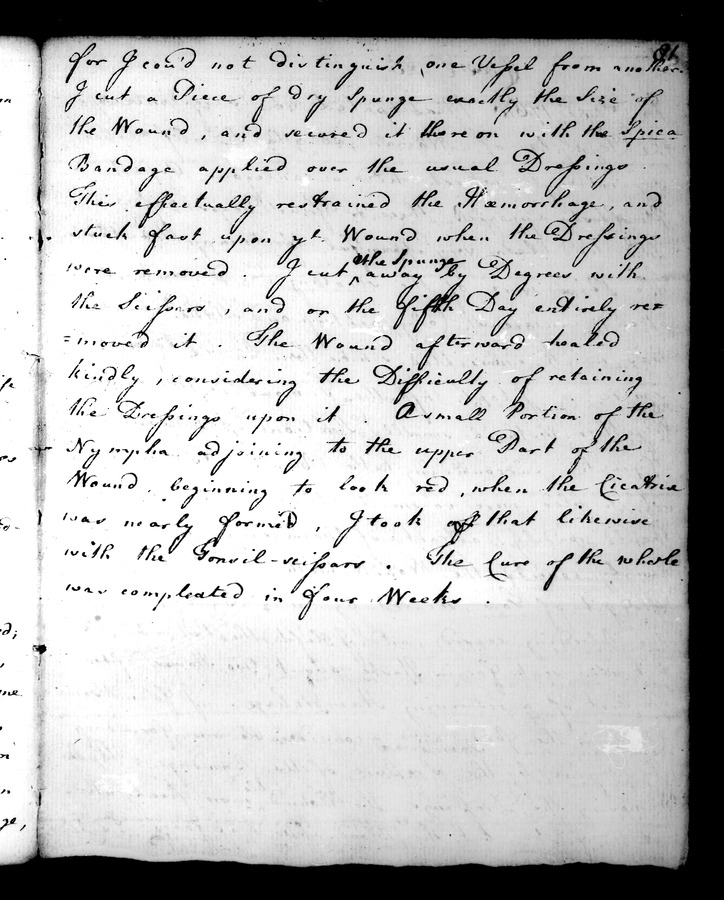 for I cou'd not distinguish one Vessel from another.
I cut a Piece of dry Spunge exactly the Size of
the Wound, and secured it thereon with the Spica
Bandage applied over the usual Dressings.
This effectually restrained the Hæmorrhage, and
stuck fast upon yt. Wound when the Dressings
were removed. I cut the Spunge away by Degrees with
the Scissars, and on the fifth Day entirely re=
=moved it. The Wound afterward healed
kindly, considering the Difficulty of retaining
the Dressings upon it. A small Portion of the
Nympha adjoining to the upper Part of the
Wound beginning to look red, when the Cicatrix
was nearly formed, I took off that likewise
with the Tonsil-scissars. The Cure of the whole
was compleated in four Weeks.